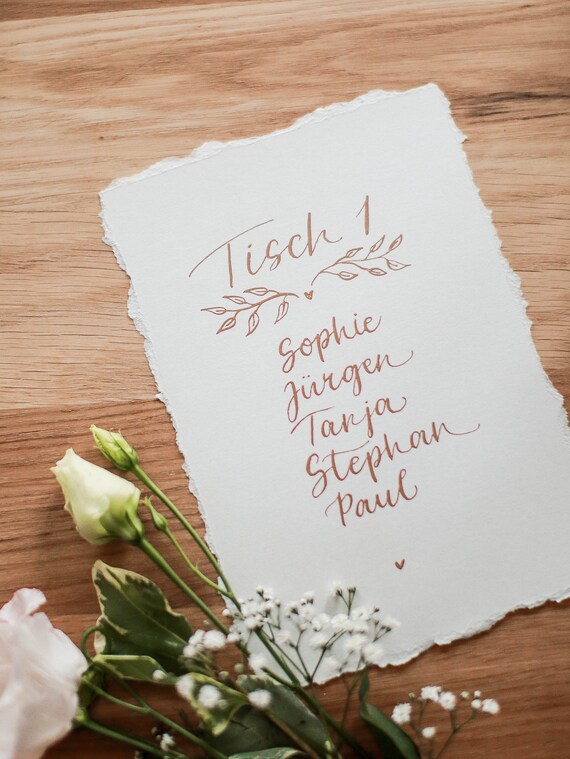 Tisch 1
Sophie
Jürgen
Tanja
Stephan
Paul